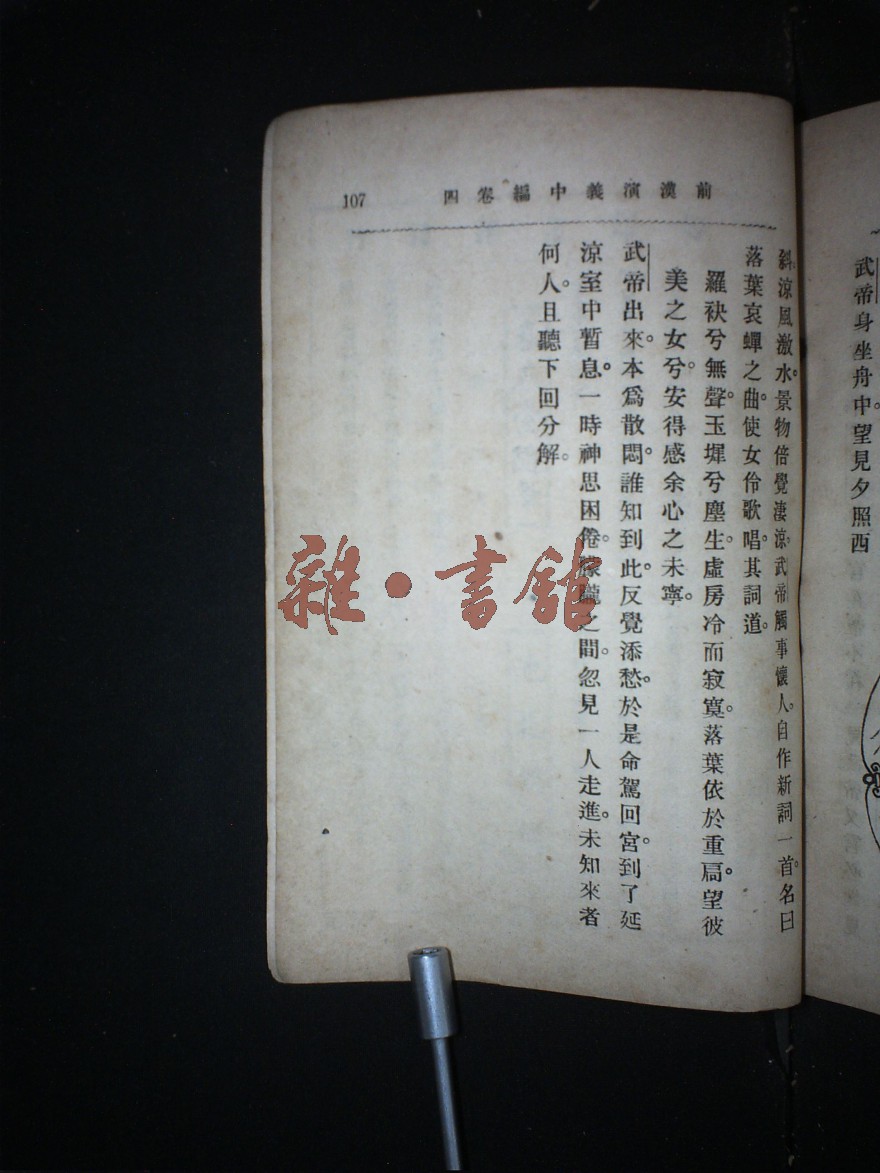 武帝身坐舟中。望見夕照西
前漢演義中編卷四
107
斜。涼風激水。景物倍覺淒涼。武帝觸事懷人。自作新詞一首。名曰
落葉哀蟬之曲。使女伶歌唱。其詞道。
羅袂兮無聲。玉墀兮塵生。虛房冷而寂寞。落葉依於重扃。望彼
美之女兮。安得感余心之未寧。
武帝出來。本爲散悶。誰知到此。反覺添愁。於是命駕回宮。到了延
涼室中暫息。一時神思困倦。朦朧之間。忽見一人走進。未知來者
何人。且聽下回分解。
雜·書館